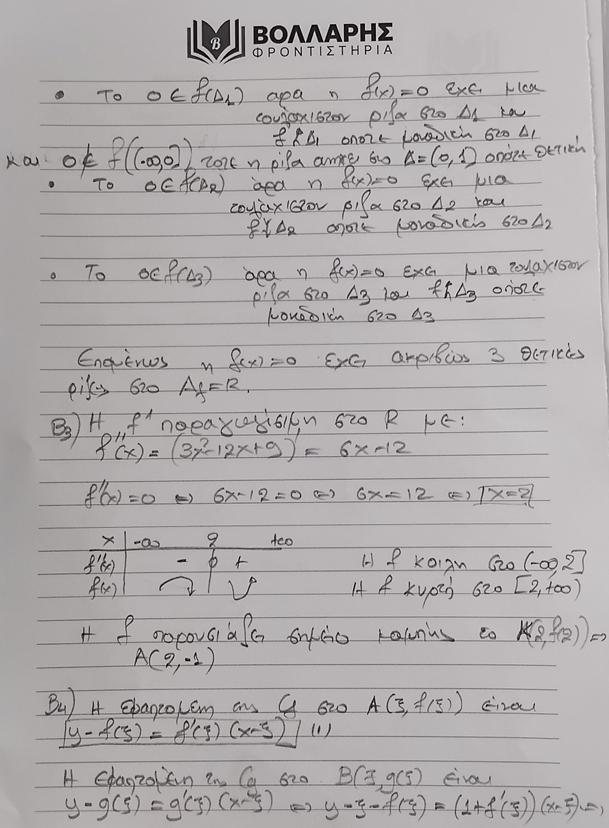 ΒΟΛΛΑΡΗΣ
ΦΡΟΝΤΙΣΤΗΡΙΑ
• Το 0∈f(Δ1) αρα η f(x)=0 εχει μια
τουλαχιστον ριζα στο Δ1 και
f↑Δ1 οποτε μοναδικη στο Δ1
και 0∉f((-∞,0]) τοτε η ριζα ανηκει στο Δ=(0,1) οποτε θετικη
• Το 0∈f(Δ2) αρα η f(x)=0 εχει μια
τουλαχιστον ριζα στο Δ2 και
f↓Δ2 οποτε μοναδικη στο Δ2
• Το 0∈f(Δ3) αρα η f(x)=0 εχει μια τουλαχιστον
ριζα στο Δ3 και f↑Δ3 οποτε
μοναδικη στο Δ3
Επομενως η f(x)=0 εχει ακριβως 3 θετικες
ριζες στο Af=R.
B3) Η f' παραγωγισιμη στο R με:
f''(x)=(3x²-12x+9)'= 6x-12
f''(x)=0 ⇔ 6x-12=0 ⇔ 6x=12 ⇔ x=2
x -∞ 2 +∞
f''(x) - 0 + Η f κοιλη στο (-∞,2]
f(x) Η f κυρτή στο [2,+∞)
Η f παρουσιαζει σημειο καμπης το A(2,f(2)) ⇒
A(2,-1)
B4) Η εφαπτομενη της Cf στο A(ξ,f(ξ)) ειναι
y-f(ξ)=f'(ξ)(x-ξ) (1)
Η εφαπτομενη της Cg στο B(ξ,g(ξ)) ειναι
y-g(ξ)=g'(ξ)(x-ξ) ⇔ y-ξ-f(ξ)=(1+f'(ξ))(x-ξ) ⇔